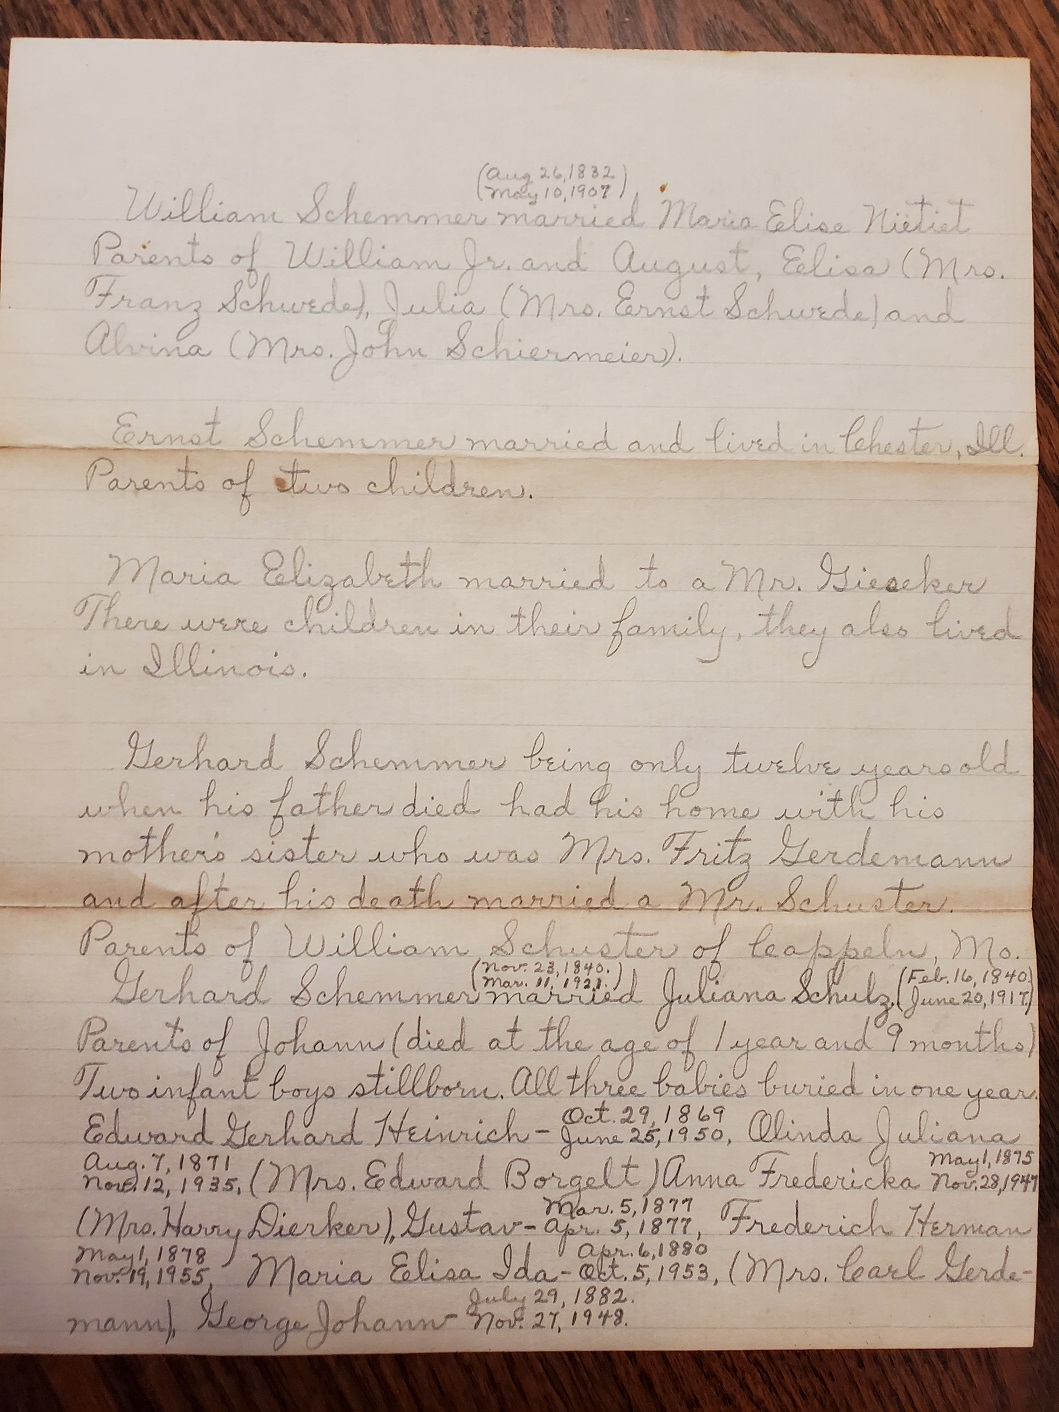 (Aug 26, 1832
May 10, 1907)
William Schemmer married Maria Elise Nietiet
Parents of William Jr. and August, Elisa (Mrs.
Franz Schwede), Julia (Mrs. Ernst Schwede) and
Alvina (Mrs. John Schiermeier).
Ernst Schemmer married and lived in Chester, Ill.
Parents of two children.
Maria Elizabeth married to a Mr. Gieseker
There were children in their family, they also lived
in Illinois.
Gerhard Schemmer being only twelve years old
when his father died had his home with his
mother's sister who was Mrs. Fritz Gerdemann
and after his death married a Mr. Schuster.
Parents of William Schuster of Cappeln, Mo.
(Nov. 23, 1840. (Feb. 16, 1840)
Mar. 11, 1921.) June 20, 1917)
Gerhard Schemmer married Juliana Schulz,
Parents of Johann (died at the age of 1 year and 9 months)
Two infant boys stillborn. All three babies buried in one year.
Oct. 29, 1869
Edward Gerhard Heinrich - June 25, 1950, Olinda Juliana
Aug. 7, 1871 May 1, 1875
Nov. 12, 1935, (Mrs. Edward Borgelt) Anna Fredericka Nov. 28, 1947
Mar. 5, 1877
(Mrs. Harry Dierker), Gustav - Apr. 5, 1877, Frederich Herman
May 1, 1878 Apr. 6, 1880
Nov. 19, 1955, Maria Elisa Ida - Oct. 5, 1953, (Mrs. Carl Gerde-
July 29, 1882.
mann), George Johann - Nov. 27, 1948.